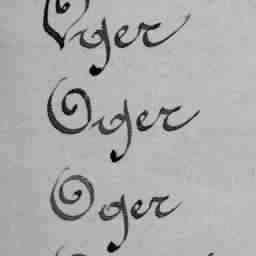 Oger
Oger
Oger